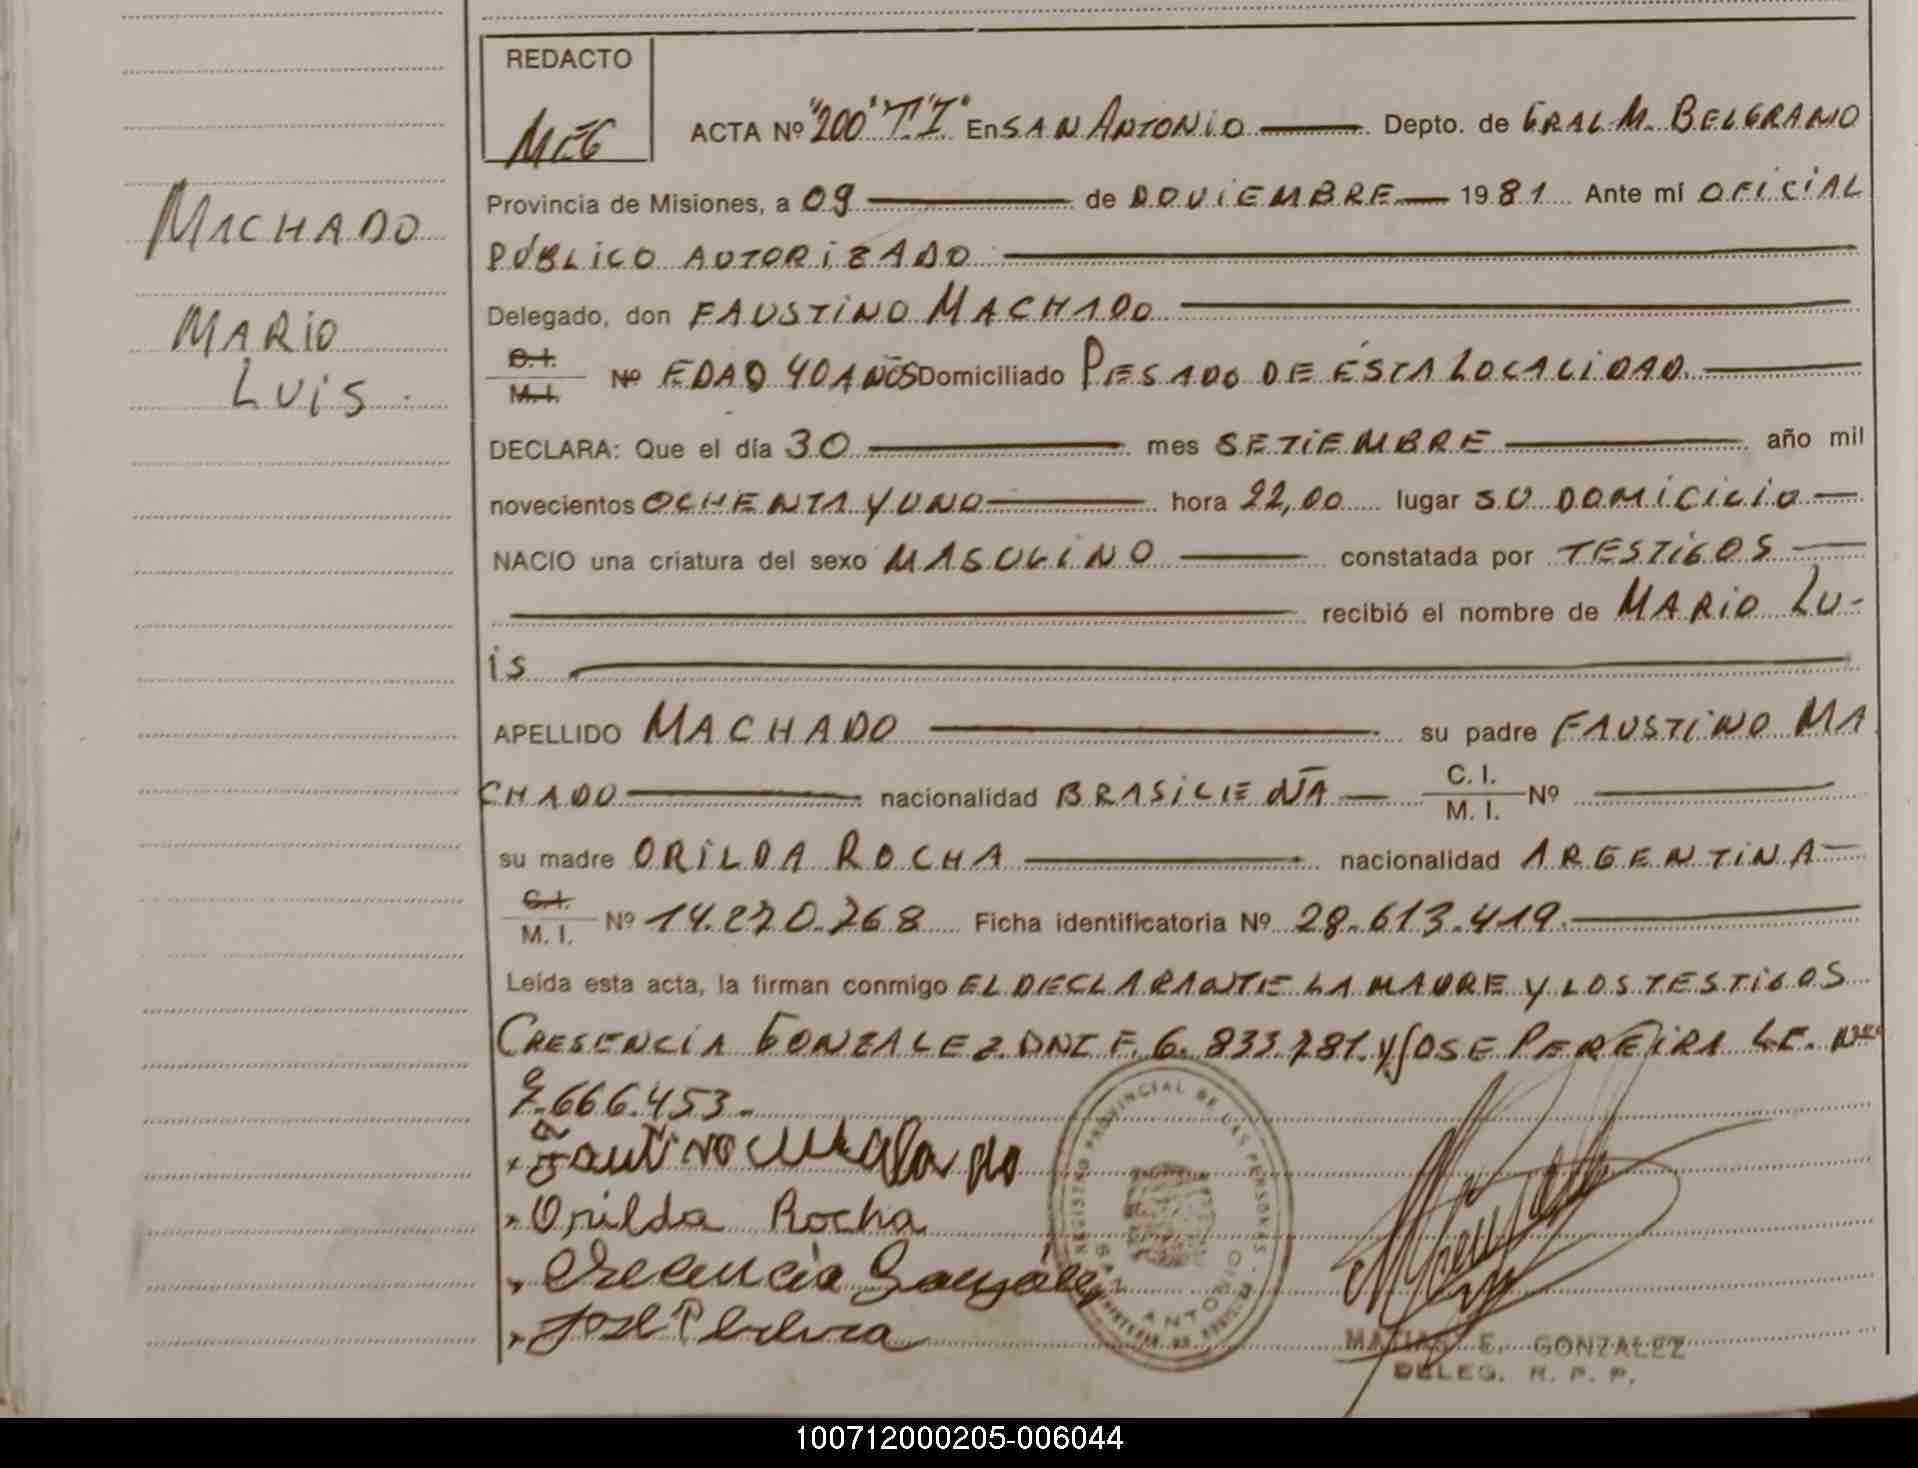 REDACTO
MEG
ACTA Nº "200" "T.I" En SAN ANTONIO Depto. de GRAL M. BELGRANO
Provincia de Misiones, a 09 de NOVIEMBRE 1981 Ante mí OFICIAL
PÚBLICO AUTORIZADO
Delegado, don FAUSTINO MACHADO
C.I. M.I. Nº EDAD 40 AÑOS Domiciliado PESADO DE ÉSTA LOCALIDAD.
DECLARA: Que el día 30 mes SETIEMBRE año mil
novecientos OCHENTA Y UNO hora 22,00 lugar SU DOMICILIO
NACIO una criatura del sexo MASULINO constatada por TESTIGOS
recibió el nombre de MARIO LU-
IS
APELLIDO MACHADO su padre FAUSTINO MA
CHADO nacionalidad BRASILIEÑA C. I. M. I. Nº
su madre ORILDA ROCHA nacionalidad ARGENTINA
C.I. M. I. Nº 14.270.768 Ficha identificatoria Nº 28.613.419.
Leída esta acta, la firman conmigo EL DECLARANTE LA MADRE Y LOS TESTIGOS
CRESENCIA GONZALEZ DNI F. 6.833.781. y JOSE PEREIRA LE. Nº
7.666.453.
MACHADO
MARIO
LUIS.
Orilda Rocha
Crecencia González
REGISTRO PROVINCIAL DE LAS PERSONAS
SAN ANTONIO
MATIAS E. GONZALEZ
DELEG. R. P. P.
100712000205-006044